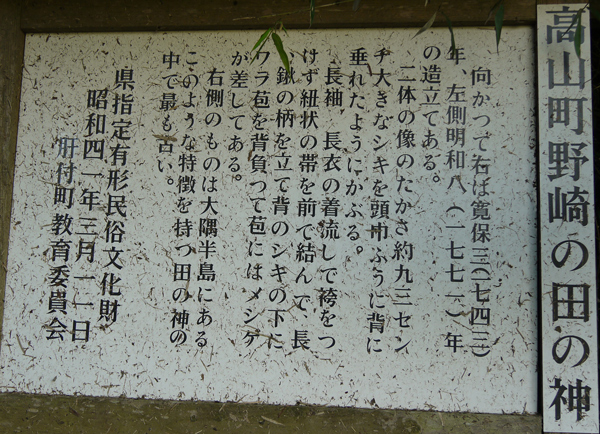 高山町野崎の田の神
向かつて右ば寛保三(一七四三)
年、左側明和八(一七七一)年
の造立てある。
二体の像のたかさ約九三セン
チ大きなシキを頭巾ふうに背に
垂れたようにかぶる。
長袖、長衣の着流しで袴をつ
けず紐状の帯を前で結んで、長
い鍬の柄を立て背のシキの下に
ワラ苞を背負つて苞にはメシゲ
が差してある。
右側のものは大隅半島にある
このような特徴を持つ田の神の
中で最も古い。
県指定有形民俗文化財
昭和四一年三月一一日
肝付町教育委員会